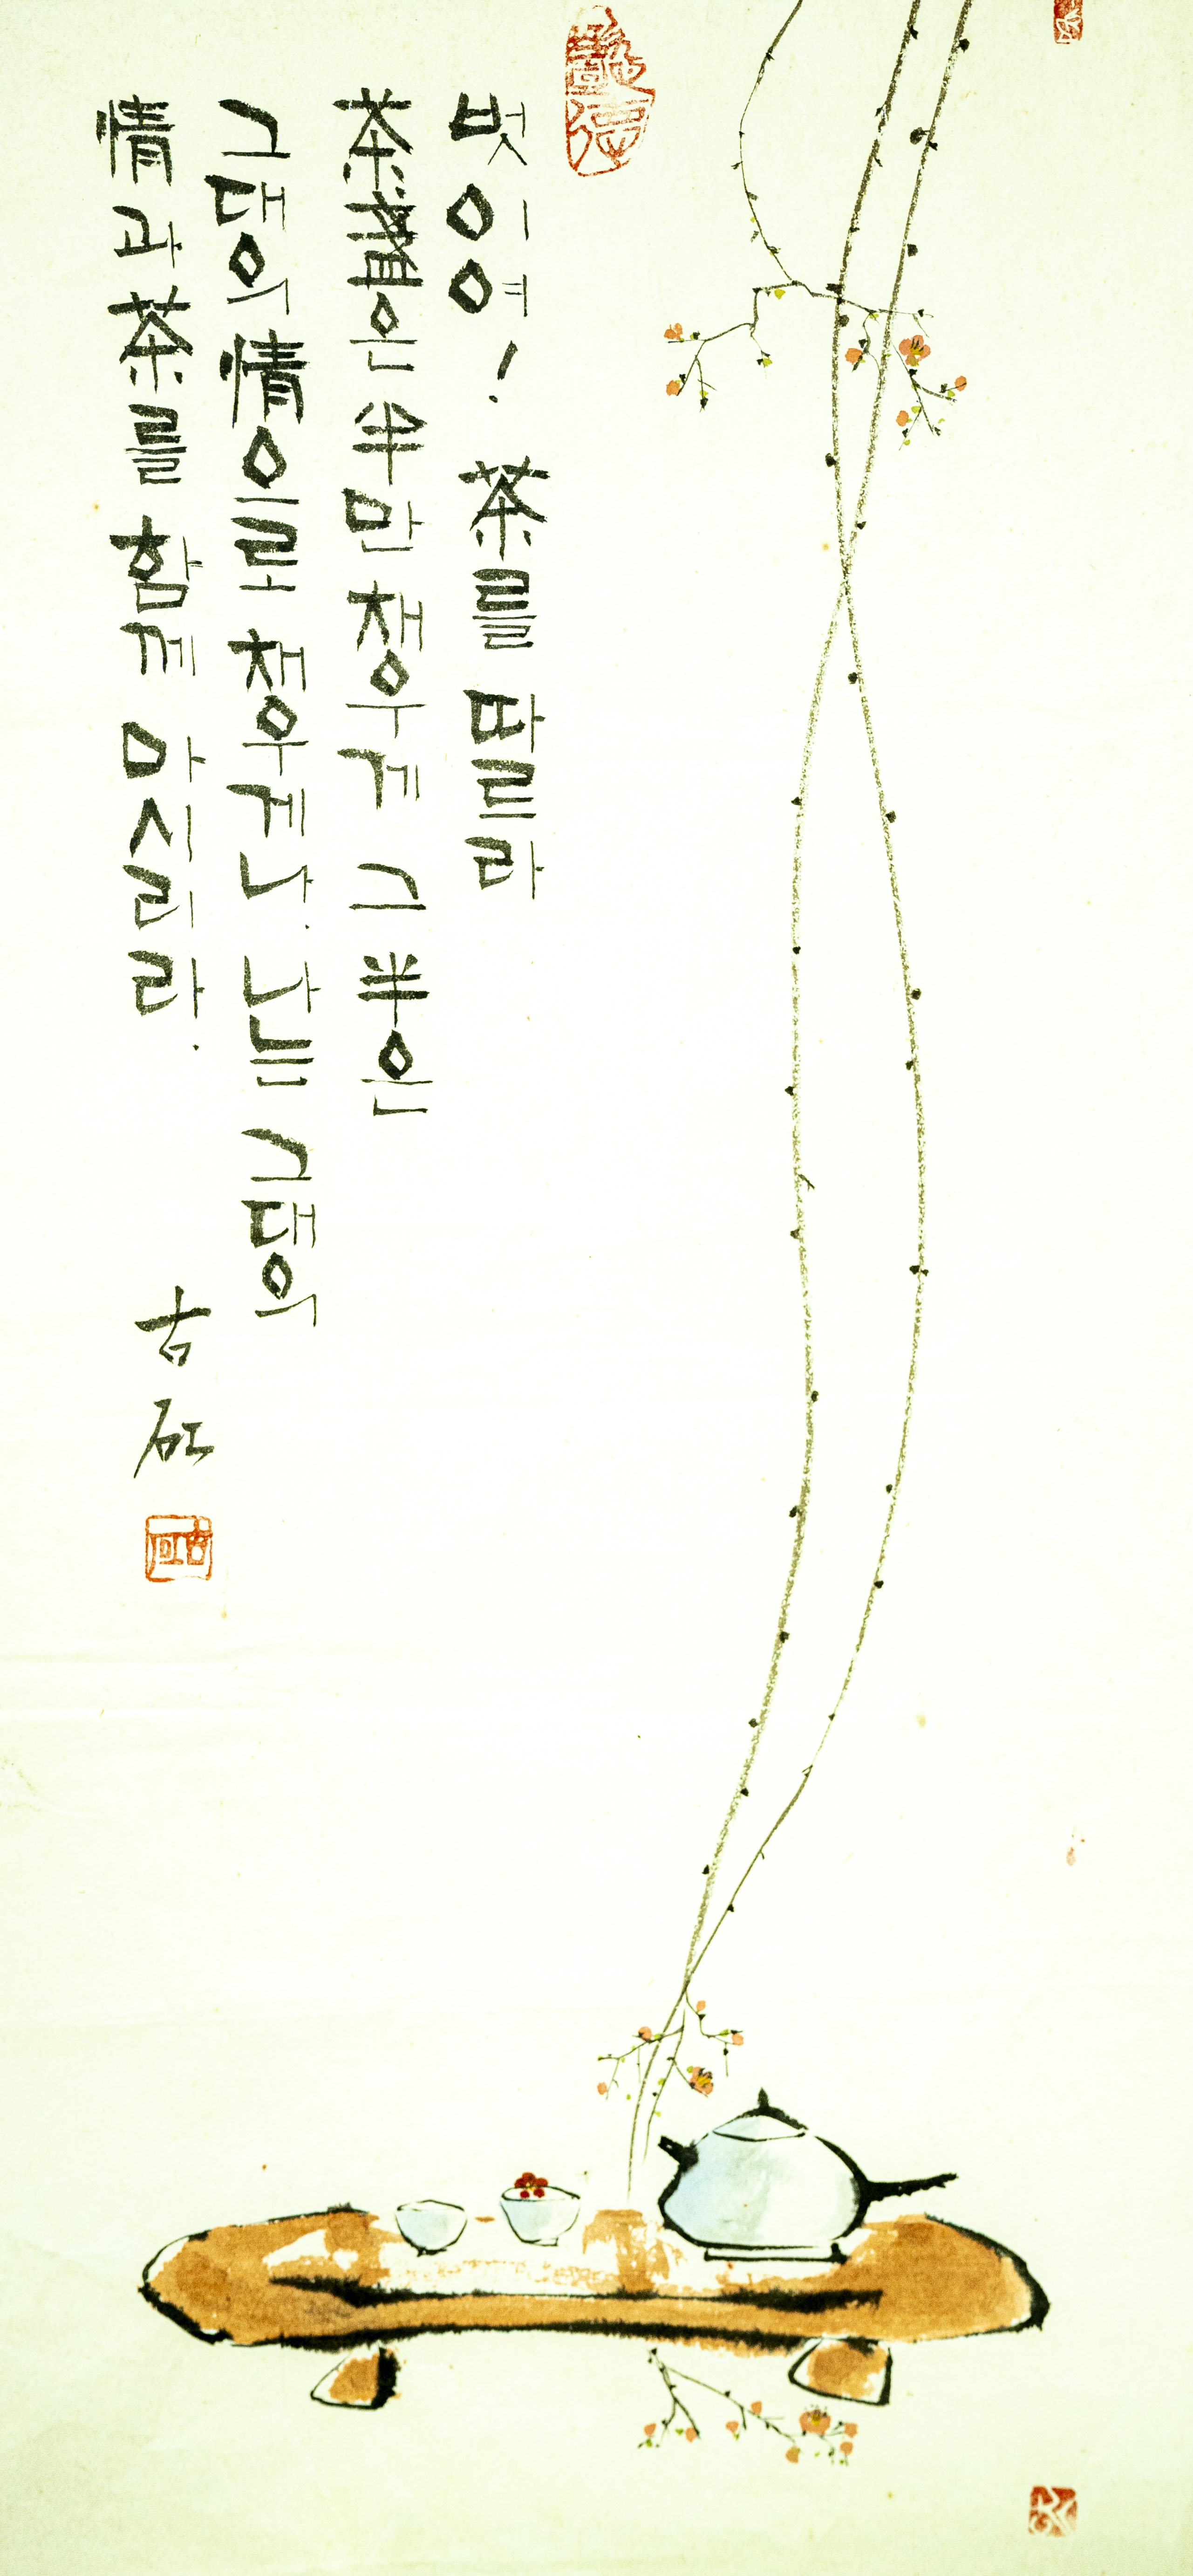 벗이여! 茶를 따르라
茶盞은 半만 챙우게 그 半은
그대의 情으로 챙우게나. 나는 그대의
情과 茶를 함께 마시리라.
古矼